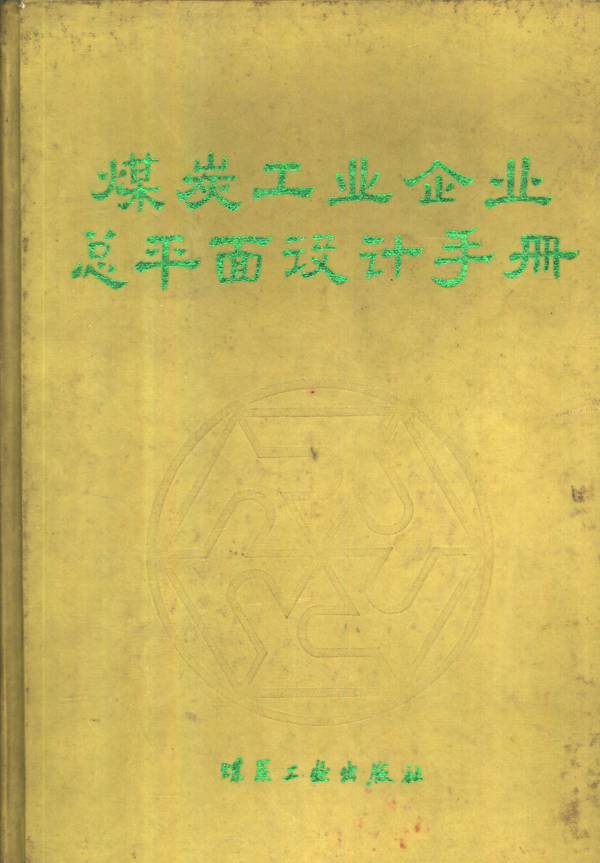 煤炭工业企业
总平面设计手册
煤炭工业出版社